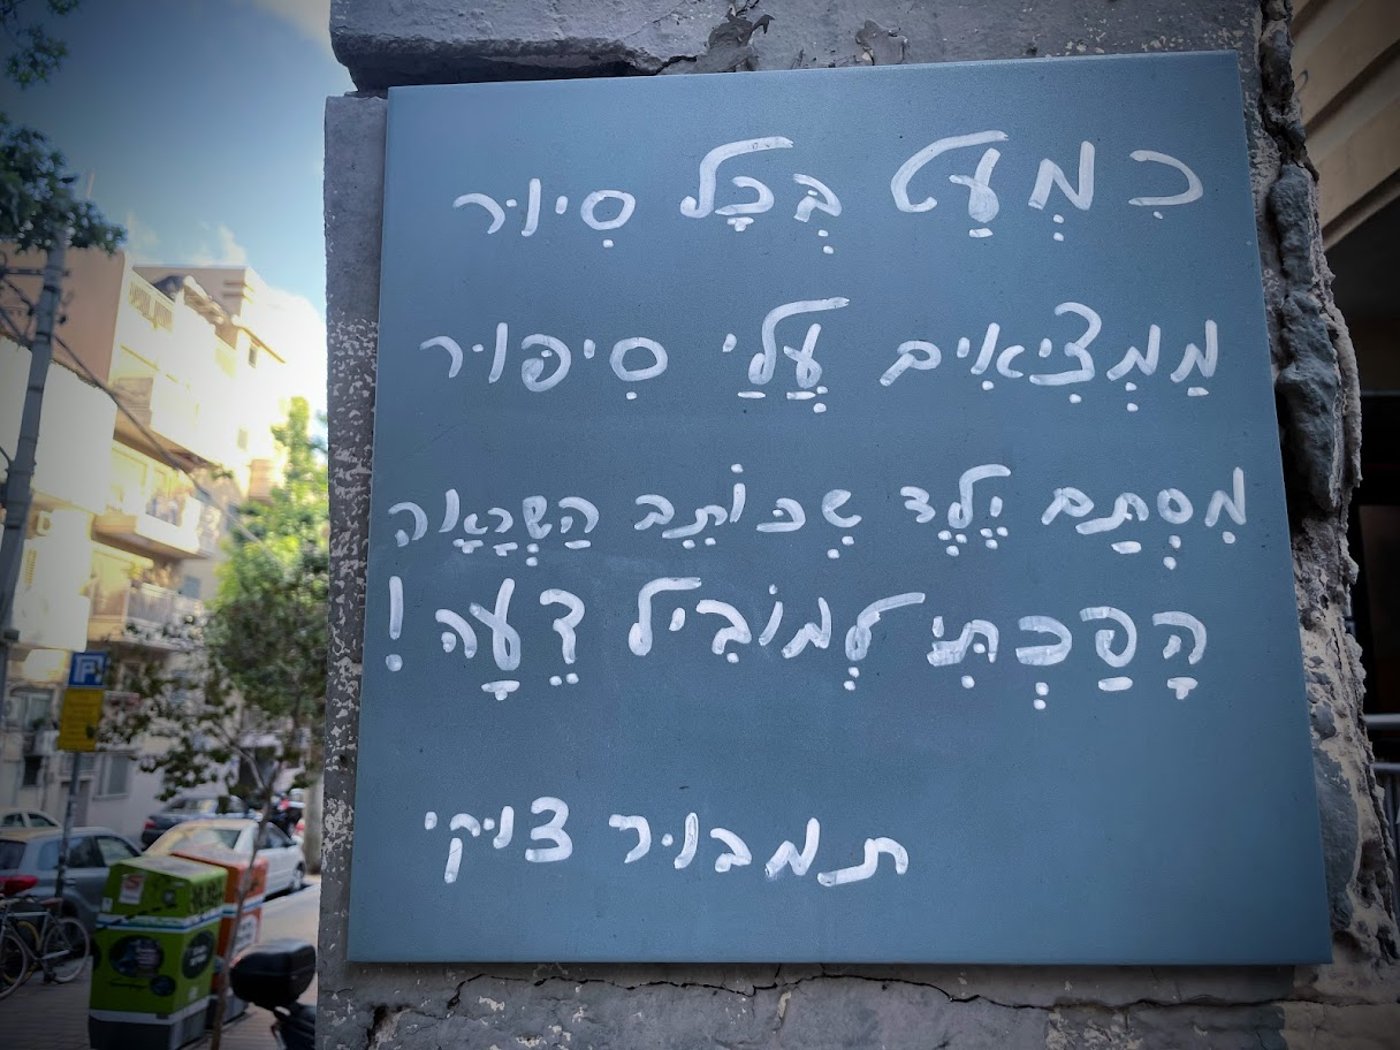 כִּמְעַט בְּכָל סִיוּר
מַמְצִיאִים עֲלַי סִיפּוּר
מִסְתַּם יֶלֶד שֶׁכּוֹתֵב הַשְׁרָאָוֹה
הָפַכְתִּי לְמוֹבִיל דֵּעָה!
תמבור צוקי
P